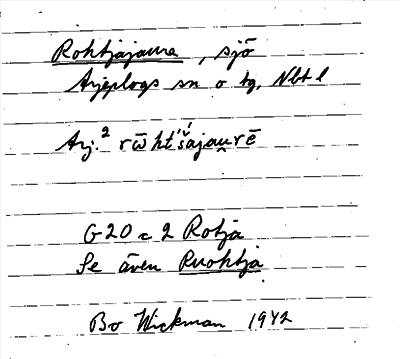 Rohtjajaure, sjö
Arjeplogs sn o tg, Nbt l
Arj.² rω̄ht´šajau̯rē
G20 = 2 Rotja
Se även Ruohtja
Bo Wickman 1942